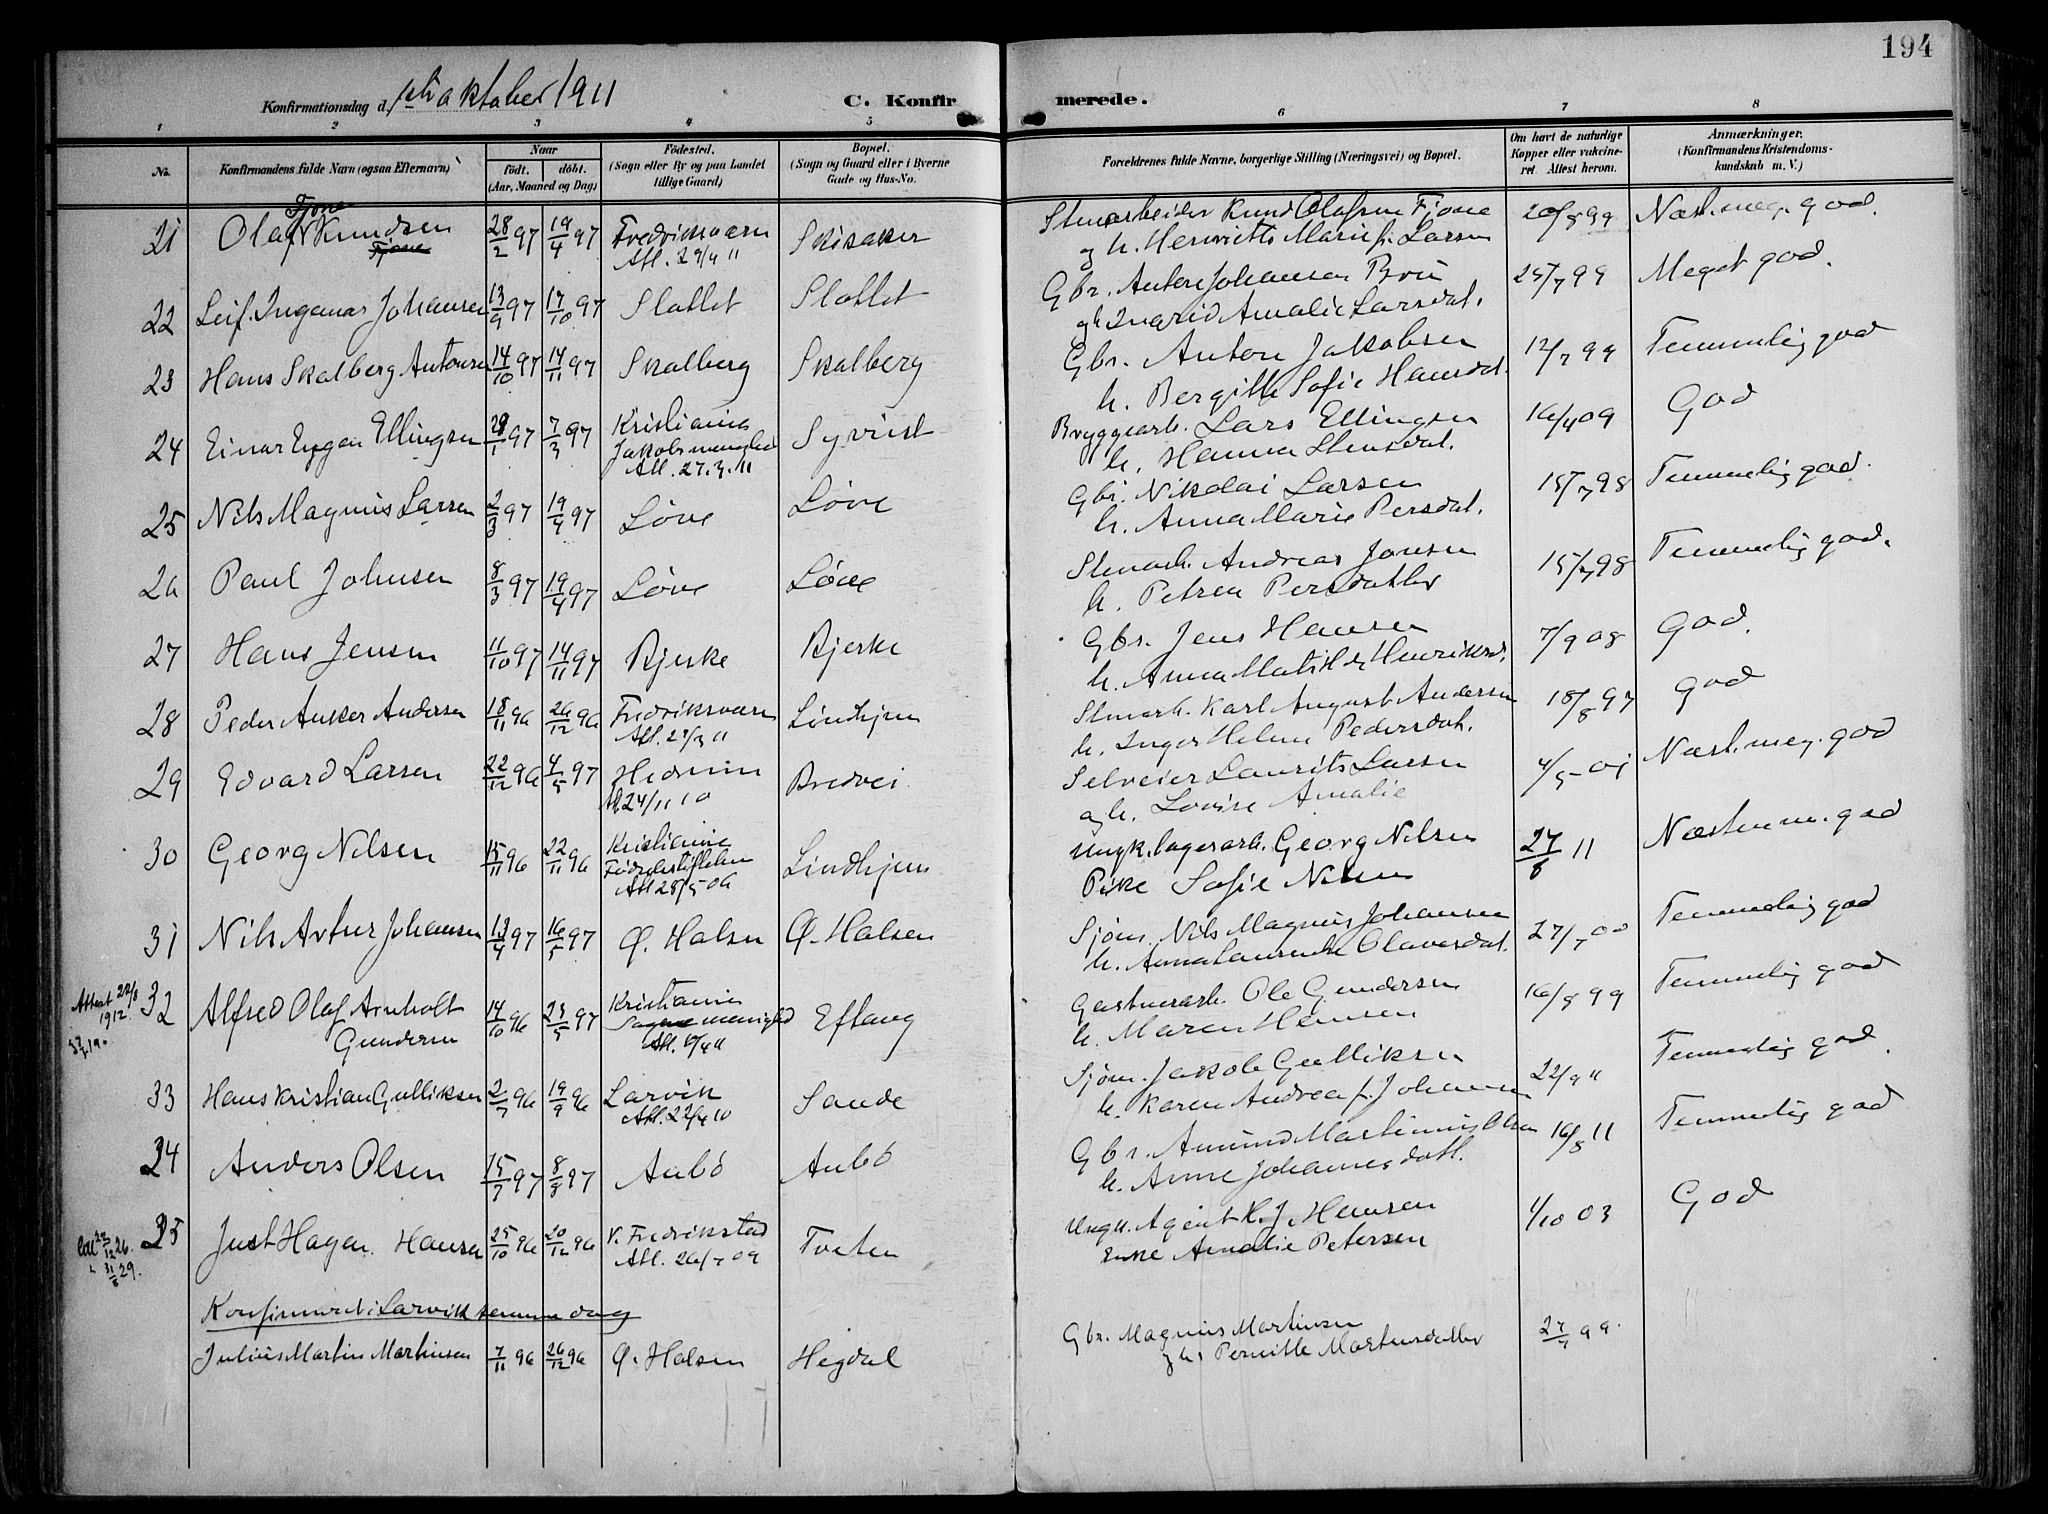 194
Konfirmationsdag d. 1ste oktober 1911
C. Konfirmerede.
1 2 3 4 5 6 7 8
No.
Konfirmandens fulde Navn (ogsaa Efternavn)
Naar
født. døbt.
(Aar, Maaned og Dag)
Fødested.
(Sogn eller By og paa Landet
tillige Gaard)
Bopæl.
(Sogn og Gaard eller i Byerne
Gade og Hus-No.
Forældrenes fulde Navne, borgerlige Stilling (Næringsvei) og Bopæl.
Om havt de naturlige
Kopper eller vakcine-
ret. Attest herom.
Anmærkninger.
(Konfirmandens Kristendoms-
kundskab m. V.)
Fjone
21 Olaf Knudsen 28/2 97 19/4 97 Fredriksværn Skisaker Stenarbeider Knud Olafsen Fjone 20/8 99 Næst. meg. god.
Fjone Att. 29/4 11 og h. Henriette Marie f. Larsen
22 Leif Ingemar Johansen 13/9 97 17/10 97 Slottet Slottet Gbr. Anton Johansen 25/7 99 Meget god.
og h. Ingrid Amalie Larsdat.
23 Hans Skalberg Antonsen 14/10 97 14/11 97 Skalberg Skalberg Gbr. Anton Jakobsen 12/7 99 Temmelig god
h. Bergitte Sofie Hansdat.
24 Einar Eugen Ellingsen 97 7/3 97 Kristiania Syvrist Bryggearb. Lars Ellingsen 16/4 09 God
Jakobs menighed h. Hanna Stensdat.
Att. 27.3.11
25 Nils Magnus Larsen 2/3 97 19/4 97 Løve Løve Gbr. Nikolai Larsen 15/7 98 Temmelig god.
h. Anna Marie Persdat.
26 Paul Johnsen 8/3 97 19/4 97 Løve Løve Stenarb. Andreas Jonsen 15/7 98 Temmelig god.
h. Petrea Persdatter
27 Hans Jensen 11/10 97 14/11 97 Bjerke Bjerke Gbr. Jens Hansen 7/9 08 God.
h. Anna Matilde Henriksd.
28 Peder Anker Andersen 18/11 96 26/12 96 Fredriksværn Lindhjem Stenarb. Karl August Andersen 18/8 97 God
Att. 11 h. Inger Helene Pedersdat.
29 Edvard Larsen 22/12 96 4/5 97 Hedrum Bredvei Selveier Laurits Larsen 4/5 01 Næst. meg. god
Att. 24/11 10 og h. Lovise Amalie
30 Georg Nilsen 15/11 96 22/11 96 Kristiania Lindhjem Ungk. lagerarb. Georg Nilsen 27/6 11 Næsten m. god
Fødselsstiftelsen Pike Sofie Nilsen
Att 28/5 06
31 Nils Artur Johansen 13/4 97 16/5 97 Ø. Halsen Ø. Halsen Sjøm. Nils Magnus Johansen 27/7 00 Temmelig god
h. Anna Laurentse Olavesdat.
Attest 22/8 1912.
32 Alfred Olaf Arnholt 14/10 96 23/5 97 Kristiania Eftang Gartnerarb. Ole Gundersen 16/8 99 Temmelig god
Gundersen Sagene menighed h. Maren Hansen
33 Hans Kristian Gulliksen 2/7 96 19/9 96 Larvik Sande Sjøm. Jakob Gulliksen 22/9 11 Temmelig god.
Att. 22/4 10 h. Karen Andrea f. Johansen
34 Anders Olsen 15/7 97 8/8 97 Aubø Aubø Gbr. Amund Martinius Olsen 16/8 11 Temmelig god
h. Anne Johannesdatt.
35 Just Hagen Hansen 25/10 96 20/12 96 V. Fredrikstad Tveten Ungk. Agent H. J. Hansen 1/10 03 God
Att. 26/7 09 Enke Amalie Petersen
Konfirmert i Larvik samme dag
Julius Martin Martinsen 7/11 96 26/12 96 Ø. Halsen Hegdal Gbr. Magnus Martinsen 27/7 99.
og h. Pernille Martinsdatter